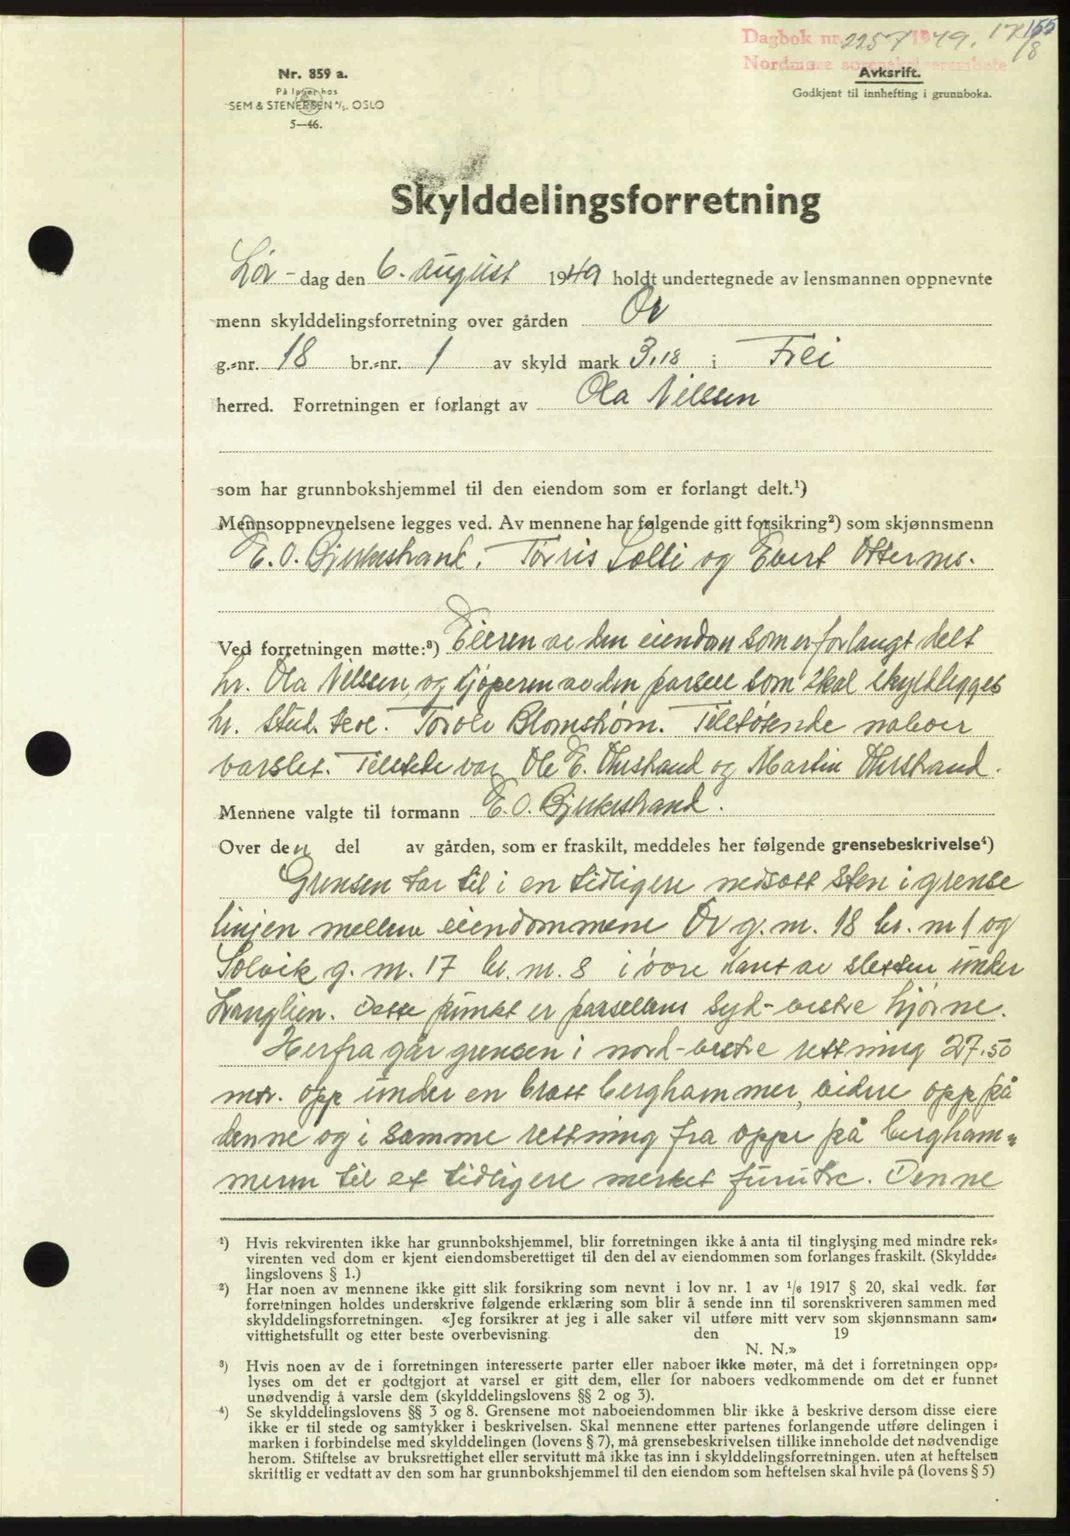 Dagbok nr. 2257/1949. 17/8
155
Nordmøre sorenskriverembete
Nr. 859 a.
På lager hos
SEM & STENERSEN A/S. OSLO
5—46.
Avksrift.
Godkjent til innhefting i grunnboka.
Skylddelingsforretning
Lør-dag den 6. august 1949 holdt undertegnede av lensmannen oppnevnte
menn skylddelingsforretning over gården Ør
g.-nr. 18 br.-nr. 1 av skyld mark 3,18 i Frei
herred. Forretningen er forlangt av Ola Nilssen
som har grunnbokshjemmel til den eiendom som er forlangt delt.¹)
Mennsoppnevnelsene legges ved. Av mennene har følgende gitt forsikring²) som skjønnsmenn
E. O. Bjerkestrand, Torris Solli og Evert
Ved forretningen møtte:³) Eieren av den eiendom som er forlangt delt
hr. Ola Nilssen, og kjøperen av den parsell som skal skyldlegges
hr. stud. Torolv Blomstrøm. Tilstøtende naboer
varslet. Tilstede var Ole E. Ørstrand og Martin Ørstrand.
Mennene valgte til formann E. O. Bjerkestrand.
Over den del av gården, som er fraskilt, meddeles her følgende grensebeskrivelse⁴)
Grensen tar til i en tidligere nedsatt sten i grense
linjen mellem eiendommene Ør g. nr. 18 br. nr 1 og
Solvik g. nr. 17 br. nr. 8 i øvre kant av sletten under
Langlien. Dette punkt er parsellens syd-vestre hjørne.
Herfra går grensen i nord-vestre rettning 27.50
mtr. opp under en bratt berghammer, videre opp på
denne og i samme rettning fra oppe på bergham-
meren til et tidligere merket furutre. Denne
¹) Hvis rekvirenten ikke har grunnbokshjemmel, blir forretningen ikke å anta til tinglysing med mindre rek-
virenten ved dom er kjent eiendomsberettiget til den del av eiendommen som forlanges fraskilt. (Skyldde-
lingslovens § 1.)
²) Har noen av mennene ikke gitt slik forsikring som nevnt i lov nr. 1 av 1/6 1917 § 20, skal vedk. før
forretningen holdes underskrive følgende erklæring som blir å sende inn til sorenskriveren sammen med
skylddelingsforretningen. «Jeg forsikrer at jeg i alle saker vil utføre mitt verv som skjønnsmann sam-
vittighetsfullt og etter beste overbevisning den 19
N. N.»
³) Hvis noen av de i forretningen interesserte parter eller naboer ikke møter, må det i forretningen opp-
lyses om det er godtgjort at varsel er gitt dem, eller for naboers vedkommende om det er funnet
unødvendig å varsle dem (skylddelingslovens §§ 2 og 3).
⁴) Se skylddelingslovens §§ 3 og 8. Grensene mot naboeiendommen blir ikke å beskrive dersom disse eiere
ikke er til stede og samtykker i beskrivelsen. Skal mennene etter partenes forlangende utføre delingen i
marken i forbindelse med skylddelingen (lovens § 7), må grensebeskrivelsen tillike inneholde det nødvendige
herom. Stiftelse av bruksrettighet eller servitutt må ikke tas inn i skylddelingsforretningen. uten at heftelsen
skriftlig er vedtatt av den som har grunnbokshjemmel til den eiendom som heftelsen skal hvile på (lovens § 5)